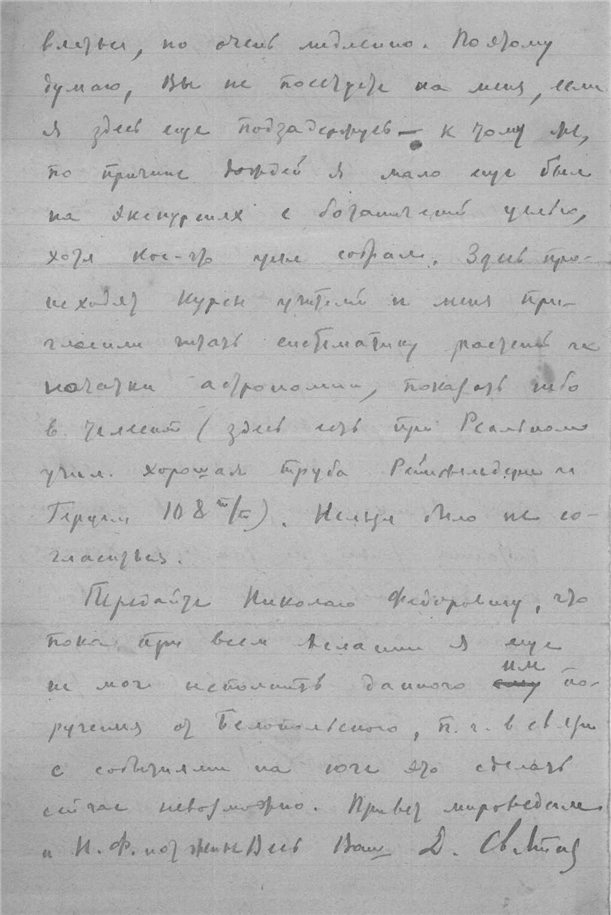 вляться, но очень медленно. Поэтому
думаю, Вы не посетуете на меня, если
я здесь еще подзадержусь – к тому же,
по причине дождей я мало еще был
на экскурсиях с ботанической целью,
хотя кое-что уже собрал. Здесь про-
исходят курсы учителей и меня при-
гласили читать систематику растений и
начатки астрономии, показать небо
в телескоп (здесь есть при Реальном
учил. хорошая труба Рейнфельдера и
Гертель 108 m/m). Нельзя было не со-
гласиться.
Передайте Николаю Федоровичу, что
пока при всем желании я еще
не мог исполнить данного им по-
ручения от Белопольского, т. к. в связи
с событиями на юге это сделать
сейчас невозможно. Привет мироведам
и Н. Ф. Весь Ваш Д. Святский